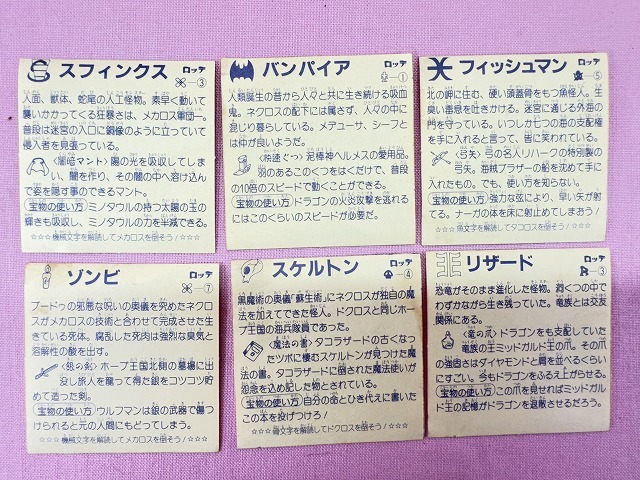 スフィンクス
ロッテ
③
人面、獣体、蛇尾の人工怪物。素早く動いて
襲いかかってくる狂暴さは、メカロス軍団一。
普段は迷宮の入口に銅像のように立っていて
侵入者を見張っている。
〈闇暗マント〉陽の光を吸収してしま
い、闇を作り、その闇の中へ溶け込ん
で姿を隠す事のできるマント。
宝物の使い方 ミノタウルの持つ太陽の玉の
輝きも吸収し、ミノタウルの力を半減できる。
☆☆☆機械文字を解読してメカロスを倒そう!☆☆☆
バンパイア
ロッテ
①
人類誕生の昔から人々と共に生き続ける吸血
鬼。ネクロスの配下には属さず、人々の中に
混じり暮らしている。メデューサ、シーフと
は仲が良いようだ。
〈快速ぐつ〉足棒神ヘルメスの愛用品。
羽のあるこのくつをはくだけで、普段
の10倍のスピードで動くことができる。
宝物の使い方 ドラゴンの火炎攻撃を逃れる
にはこのくらいのスピードが必要だ。
フィッシュマン
ロッテ
⑤
北の岬に住む、硬い頭蓋骨をもつ魚怪人。生
臭い毒息を吐きかける。迷宮に通じる外海の
門を守っている。いつしか七つの海の支配権
を手に入れると言って、皆に笑われている。
〈弓矢〉弓の名人リハークの特別製の
弓矢。海賊ブラザーの船を沈めて手に
入れたもの。でも、使い方を知らない。
宝物の使い方 強力な弦により、早い矢が射
てる。ナーガの体を床に射止めてしまおう!
☆☆☆魚文字を解読してタコロスを倒そう!☆☆☆
ゾンビ
ロッテ
⑦
ブードゥの邪悪な呪いの奥儀を究めたネクロ
スがメカロスの技術と合わせて完成させた生
きている死体。腐乱した死肉は強烈な臭気と
溶解性の酸を出す。
〈銀の剣〉ホープ王国北側の墓場に出
没し旅人を襲って得た銀をコツコツ貯
めて造った剣。
宝物の使い方 ウルフマンは銀の武器で傷つ
けられると元の人間にもどってしまう。
☆☆☆機械文字を解読してメカロスを倒そう!☆☆☆
スケルトン
ロッテ
④
黒魔術の奥儀「蘇生術」にネクロスが独自の魔
法を加えてできた怪人。ドクロスと同じホー
プ王国の海兵隊員であった。
〈魔法の書〉タコラザードの古くなっ
たツボに棲むスケルトンが見つけた魔
法の書。タコラザードに倒された魔法使いが
怨念を込め記した物とされている。
宝物の使い方 自分の命とひき代えに書いた
この本を投げつけろ!
☆☆☆骨文字を解読してドクロスを倒そう!☆☆☆
リザード
ロッテ
③
恐竜がそのまま進化した怪物。洞くつの中で
わずかながら生き残っていた。竜族とは交友
関係にある。
〈竜の爪〉ドラゴンをも支配していた
竜族の王ミッドガルド王の爪。その爪
の強固さはダイヤモンドと肩を並べるくらい
にすごい。今もドラゴンをふるえ上がらせる。
宝物の使い方 この爪を見せればミッドガル
ド王の記憶がドラゴンを退散させるだろう。